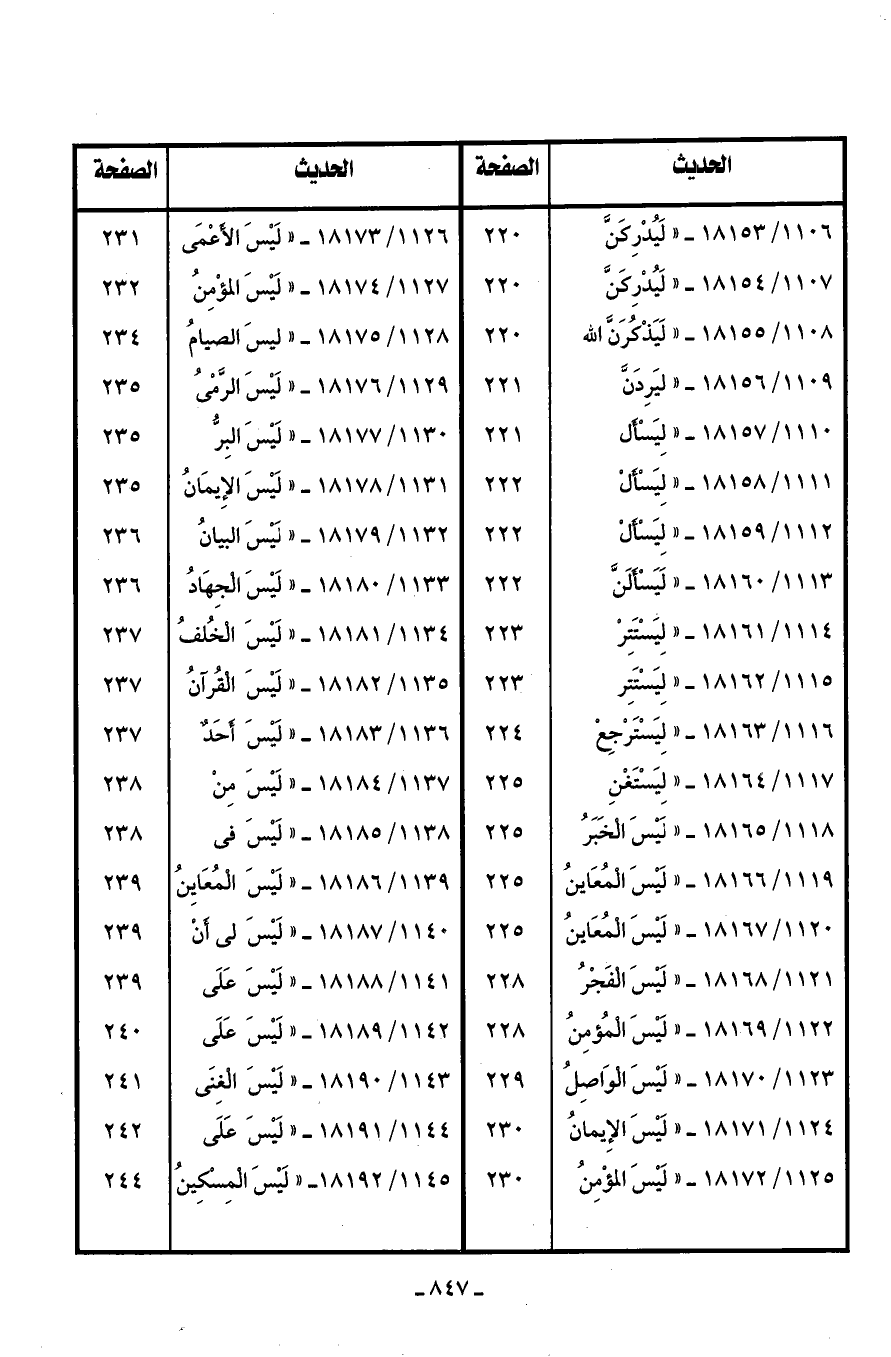 الحديث الصفحة الحديث الصفحة
١١٠٦/ ١٨١٥٣ ـ « لَيُدْرِكَنَّ ٢٢٠ ١١٢٦/ ١٨١٧٣ ـ « لَيْسَ الأَعْمَى ٢٣١
١١٠٧/ ١٨١٥٤ ـ « لَيُدْرِكَنَّ ٢٢٠ ١١٢٧/ ١٨١٧٤ ـ « لَيْسَ المؤْمِنُ ٢٣٢
١١٠٨/ ١٨١٥٥ ـ « لَيَذْكُرَنَّ الله ٢٢٠ ١١٢٨/ ١٨١٧٥ ـ « ليسَ الصيامُ ٢٣٤
١١٠٩/ ١٨١٥٦ ـ « ليَرِدَنَّ ٢٢١ ١١٢٩/ ١٨١٧٦ ـ « لَيْسَ الرَّمْىُ ٢٣٥
١١١٠/ ١٨١٥٧ ـ « لِيَسْأَل ٢٢١ ١١٣٠/ ١٨١٧٧ ـ « لَيْسَ البِرُّ ٢٣٥
١١١١/ ١٨١٥٨ ـ « لِيَسْأَلْ ٢٢٢ ١١٣١/ ١٨١٧٨ ـ « لَيْسَ الإِيمَانُ ٢٣٥
١١١٢/ ١٨١٥٩ ـ « لِيَسْأَلْ ٢٢٢ ١١٣٢/ ١٨١٧٩ ـ « لَيْسَ البيانُ ٢٣٦
١١١٣/ ١٨١٦٠ ـ « لَيَسْأَلَنَّ ٢٢٢ ١١٣٣/ ١٨١٨٠ ـ « لَيْسَ الْجِهَادُ ٢٣٦
١١١٤/ ١٨١٦١ ـ « لِيَسْتَتِرْ ٢٢٣ ١١٣٤/ ١٨١٨١ ـ « لَيْسَ الْخُلفُ ٢٣٧
١١١٥/ ١٨١٦٢ ـ « لِيَسْتَتِر ٢٢٣ ١١٣٥/ ١٨١٨٢ ـ « لَيْسَ الْقُرآنُ ٢٣٧
١١١٦/ ١٨١٦٣ ـ « لِيَسْتَرْجِعْ ٢٢٤ ١١٣٦/ ١٨١٨٣ ـ « لَيْسَ أَحَدٌ ٢٣٧
١١١٧/ ١٨١٦٤ ـ « لِيَسْتَغْنِ ٢٢٥ ١١٣٧/ ١٨١٨٤ ـ « لَيْسَ مِنْ ٢٣٨
١١١٨/ ١٨١٦٥ ـ « لَيْسَ الْخَبَرُ ٢٢٥ ١١٣٨/ ١٨١٨٥ ـ « لَيْسَ فى ٢٣٨
١١١٩/ ١٨١٦٦ ـ « لَيْسَ الْمُعَاينُ ٢٢٥ ١١٣٩/ ١٨١٨٦ ـ « لَيْسَ الْمُعَاينُ ٢٣٩
١١٢٠/ ١٨١٦٧ ـ « لَيْسَ الْمُعَاينُ ٢٢٥ ١١٤٠/ ١٨١٨٧ ـ « لَيْسَ لى أَنْ ٢٣٩
١١٢١/ ١٨١٦٨ ـ « لَيْسَ الْفَجْرُ ٢٢٨ ١١٤١/ ١٨١٨٨ ـ « لَيْسَ عَلَى ٢٣٩
١١٢٢/ ١٨١٦٩ ـ « لَيْسَ الْمُؤمِنُ ٢٢٨ ١١٤٢/ ١٨١٨٩ ـ « لَيْسَ عَلَى ٢٤٠
١١٢٣/ ١٨١٧٠ ـ « لَيْسَ الْوَاصِلُ ٢٢٩ ١١٤٣/ ١٨١٩٠ ـ « لَيْسَ الْغِنَى ٢٤١
١١٢٤/ ١٨١٧١ ـ « لَيْسَ الإِيمانُ ٢٣٠ ١١٤٤/ ١٨١٩١ ـ « لَيْسَ عَلَى ٢٤٢
١١٢٥/ ١٨١٧٢ ـ « لَيْسَ المؤْمِنُ ٢٣٠ ١١٤٥/ ١٨١٩٢ـ « لَيْسَ الْمِسْكِينُ ٢٤٤
ـ ٨٤٧ ـ